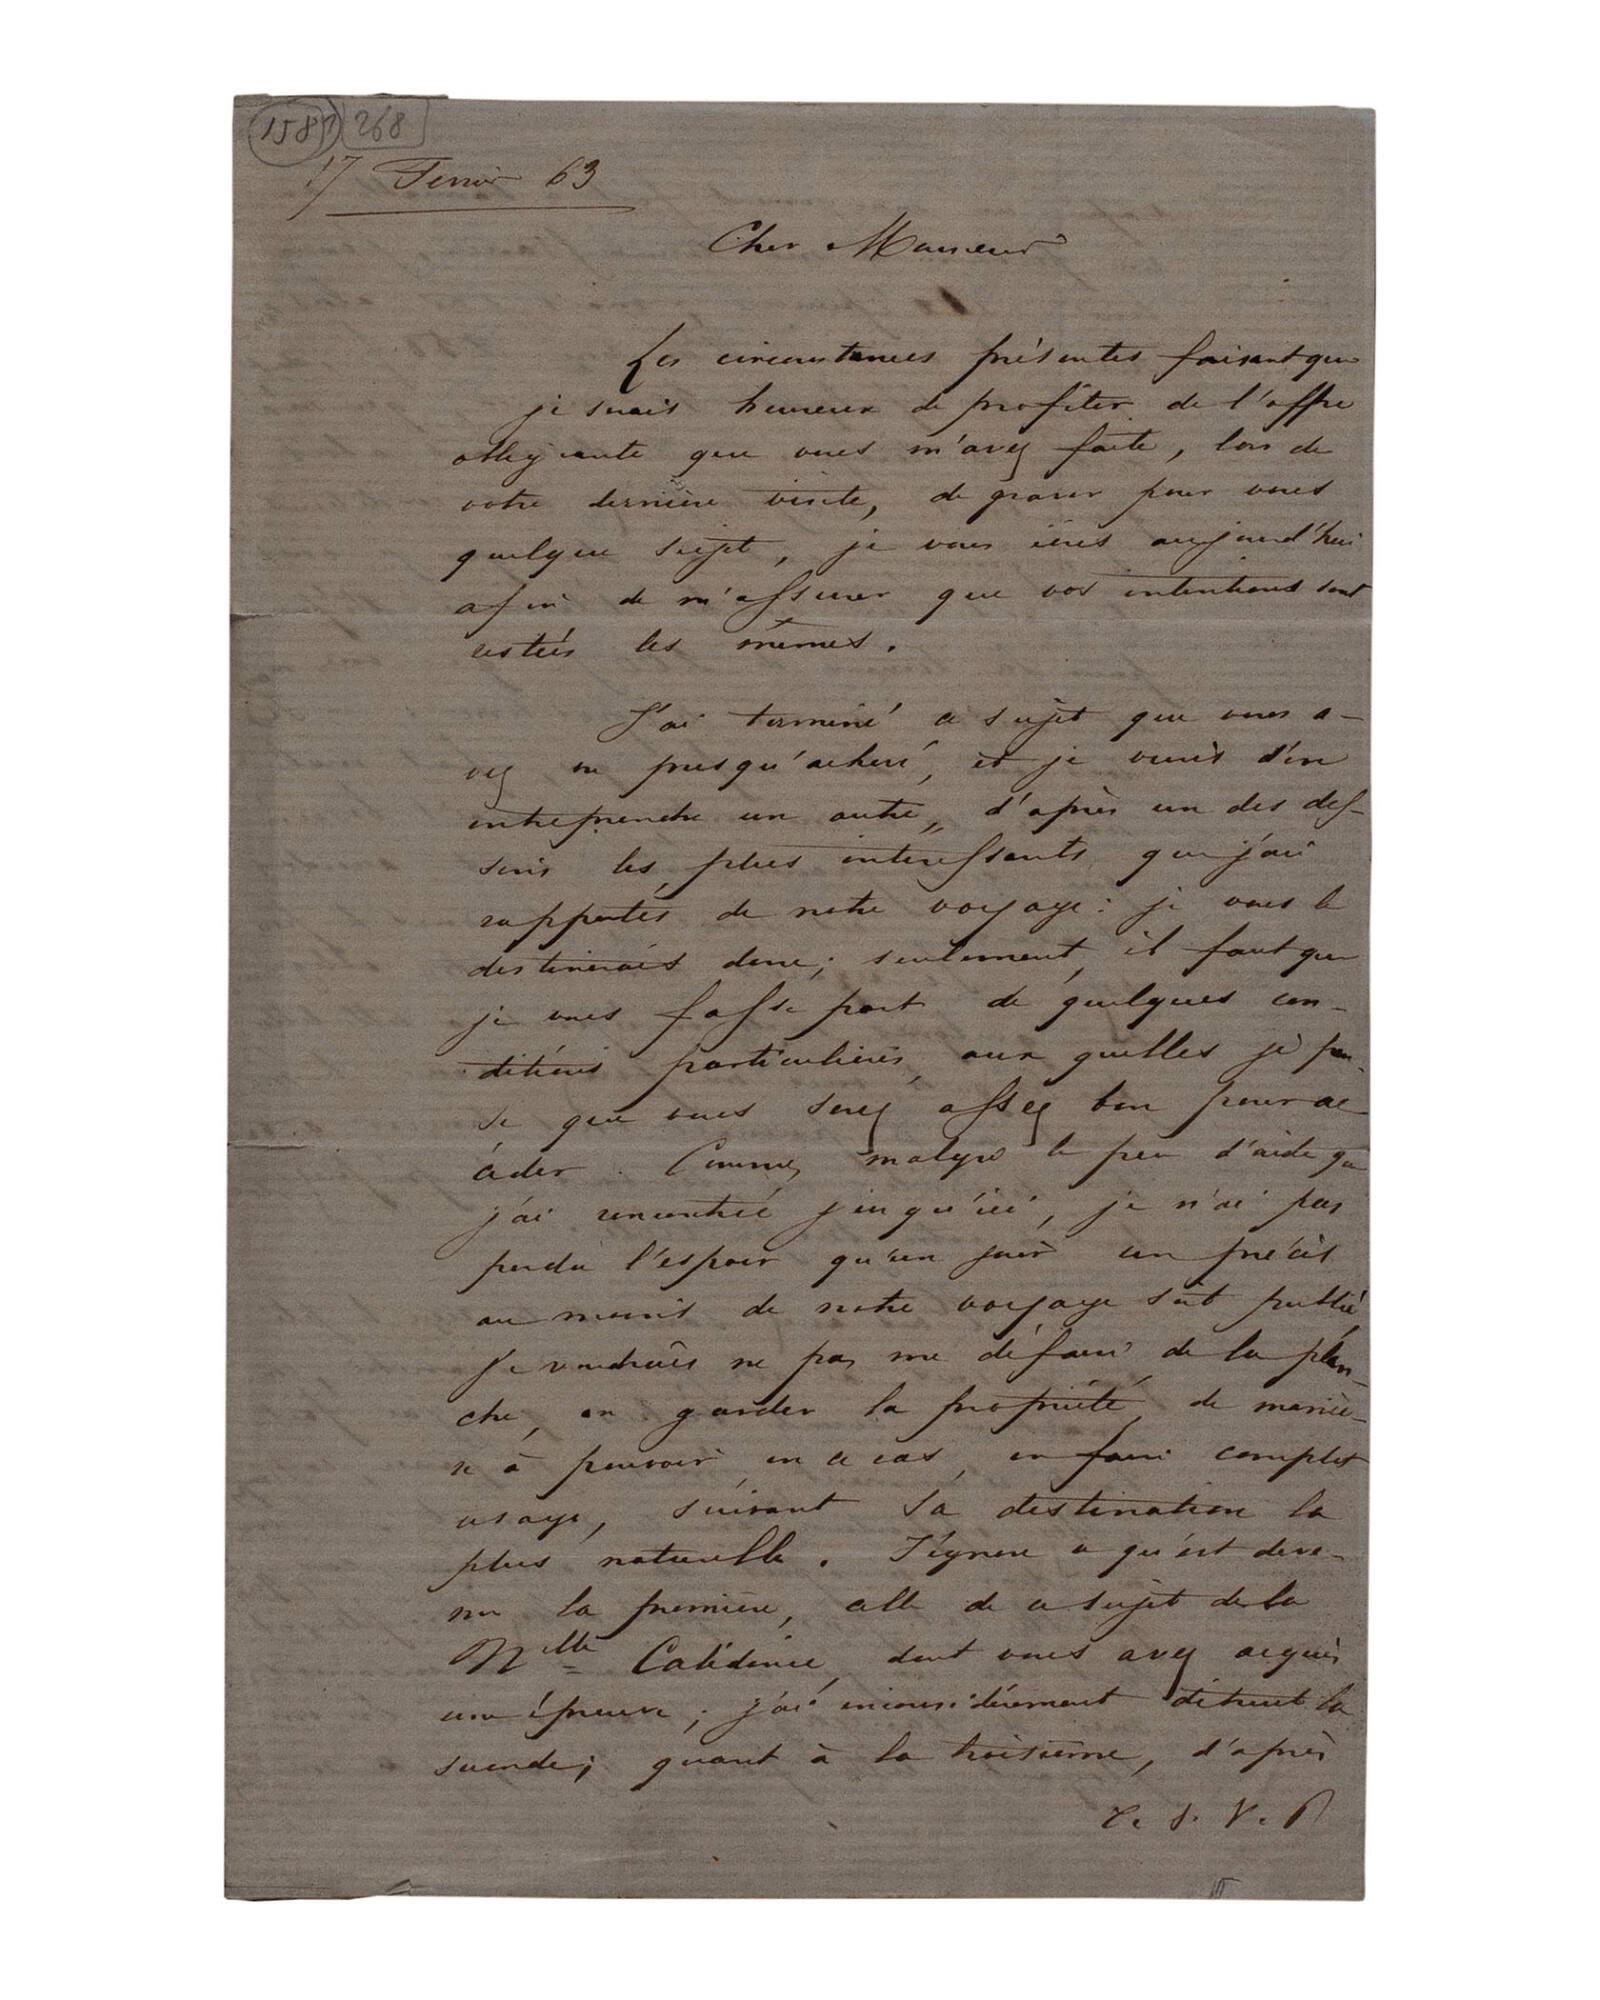 1581 268
17 Fevrier 63
Cher Monsieur
Les circonstances présentes faisant que
je serais heureux de profiter de l'offre
obligeante que vous m'avez faite, lors de
votre dernière visite, de graver pour vous
quelque sujet, je vous écris aujourd'hui
afin de m'assurer que vos intentions sont
restées les mêmes.
J'ai terminé ce sujet que vous a-
vez vu presqu'achevé, et je viens d'en
entreprendre un autre, d'après un des des-
sins les plus interessants que j'ai
rapportés de notre voyage : je vous le
destinerais donc ; seulement, il faut que
je vous fasse part de quelques con-
ditions particulières, aux quelles je pen-
se que vous serez assez bon pour ac-
céder. Comme, malgré le peu d'aide que
j'ai rencontrée jusqu'ici, je n'ai pas
perdu l'espoir qu'un jour un précis
au moins de notre voyage soit publié,
je voudrais ne pas me défaire de la plan-
che, en garder la propriété, de maniè-
re à pouvoir, en ce cas, en faire complet
usage, suivant sa destination la
plus naturelle. J'ignore ce qu'est deve-
nue la première, celle de ce sujet de la
Nlle Calédonie, dont vous avez acquis
une épreuve ; j'ai inconsidérement détruit la
seconde ; quant à la troisième, d'après
T. S. V. P